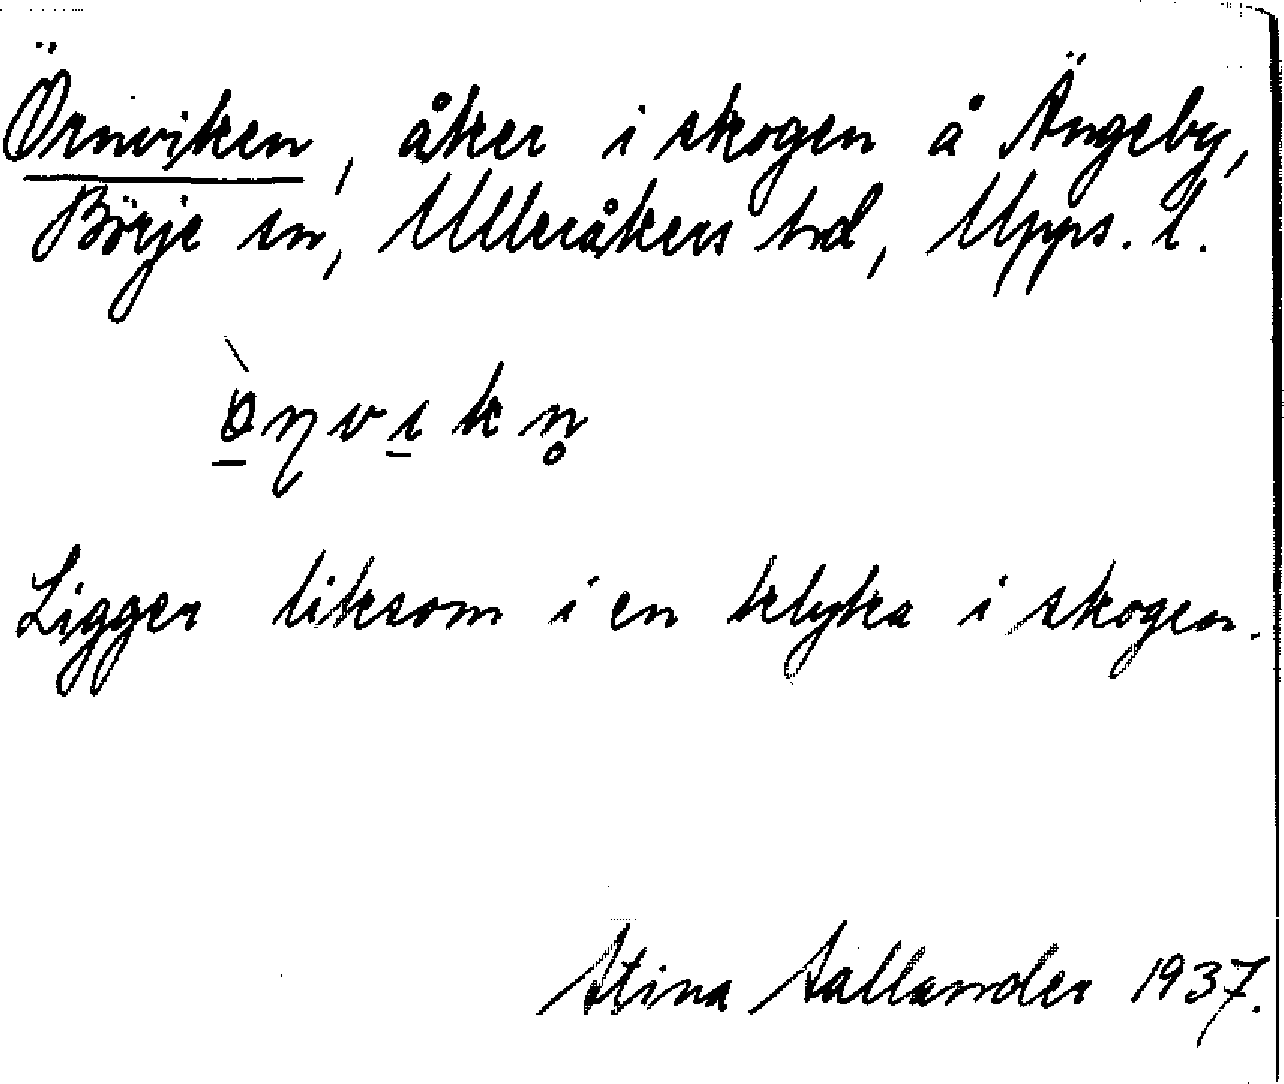 Örnviken, åker i skogen å Ängeby,
Börje sn, Ulleråkers hd, Upps. l.
Ligger liksom i en klyka i skogen.
Stina Sallander 1937.